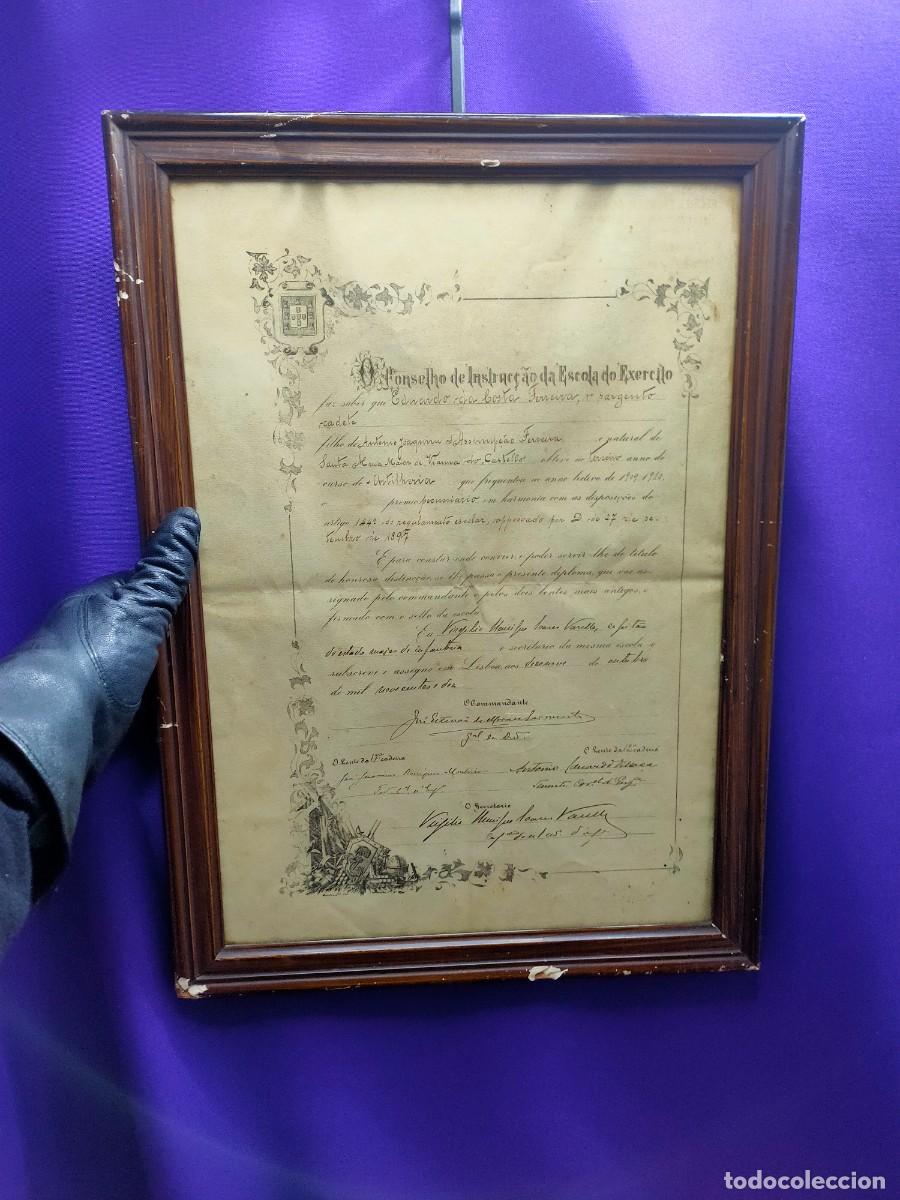 O Conselho de Instrucção da Escola do Exercito
faz saber que Eduardo da Costa Ferreira, 1º sargento
cadete
filho de Antonio Joaquim d'Assumpção Ferreira e natural de
Santa Maria Maior de Vianna do Castello obteve no anno do
curso de Artilharia que frequentou no anno lectivo de 1909-1910,
o premio pecuniario em harmonia com as disposições do
artigo 124º do regulamento escolar, approvado por D. de 27 de se-
tembro de 1897
E para constar onde convier e poder servir-lhe de titulo
de honrosa distincção, se lhe passa o presente diploma, que vae as-
signado pelo commandante e pelos dois lentes mais antigos, e
firmado com o sello da escola.
Eu Virgilio Soares Varella, capitão
do estado maior de infanteria e secretario da mesma escola o
subscrevo e assigno em Lisboa, aos dezenove de outubro
de mil novecentos e dez
O Commandante
José Estevão de Moraes Sarmento
O Lente da 1ª cadeira
O Lente da cadeira
Rodrigues Monteiro
Antonio
O Secretario
Virgilio Soares Varella
todocoleccion